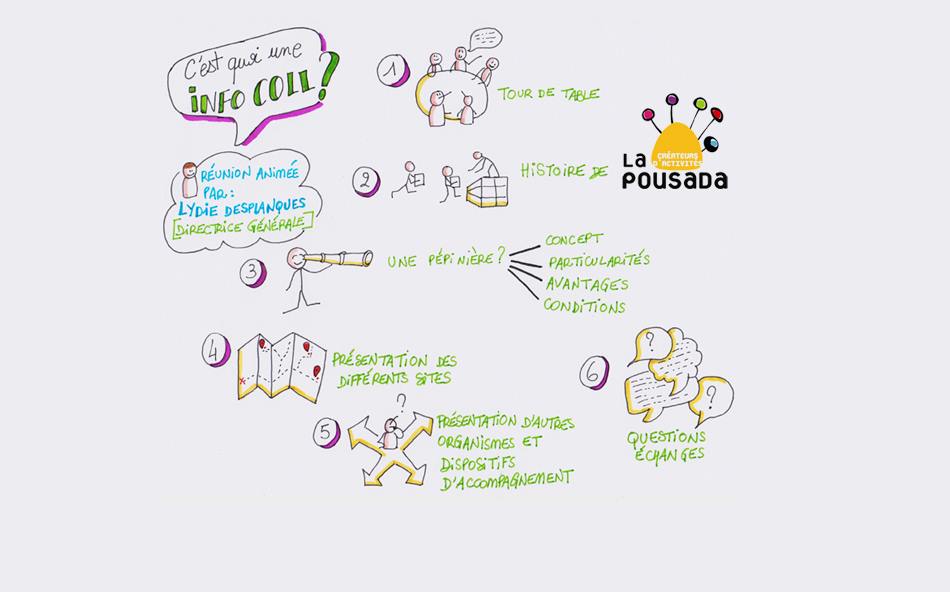 C'est quoi une
INFO COLL?
RÉUNION ANIMÉE
PAR :
LYDIE DESPLANQUES
[DIRECTRICE GÉNÉRALE]
1
TOUR DE TABLE
2
HISTOIRE DE
CRÉATEURS
D'ACTIVITÉS
LA
POUSADA
3
UNE PÉPINIÈRE ?
CONCEPT
PARTICULARITÉS
AVANTAGES
CONDITIONS
4
PRÉSENTATION DES
DIFFÉRENTS SITES
5
?
PRÉSENTATION D'AUTRES
ORGANISMES ET
DISPOSITIFS
D'ACCOMPAGNEMENT
6
?
?
QUESTIONS
ÉCHANGES